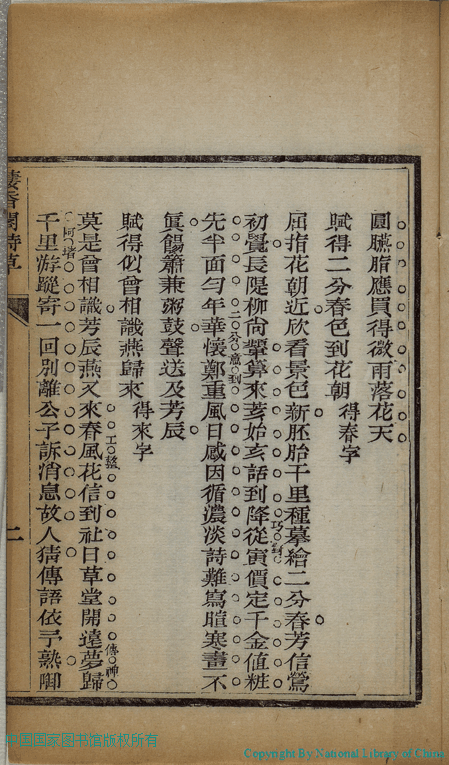 圓臙脂應買得微雨落花天
賦得二分春色到花朝 得春字
屈指花朝近欣看景色新胚胎千里種摹繪二分春芳信鶯
初覺長隄柳尚顰算來荄始亥話到降從寅價定千金值粧
巧對
先半面勻年華懷鄭重風日感因循濃淡詩難寫暄寒畫不
二分意到
眞餳簫兼粥鼓聲送及芳辰
賦得似曾相識燕歸來 得來字
莫是曾相識芳辰燕又來春風花信到社日草堂開遠夢歸
工穩
傳神
千里游蹤寄一回別離公子訴消息故人猜傳語依予熟啣
阿堵
詩草
二
中国国家图书馆版权所有
Copyright By National Library of China